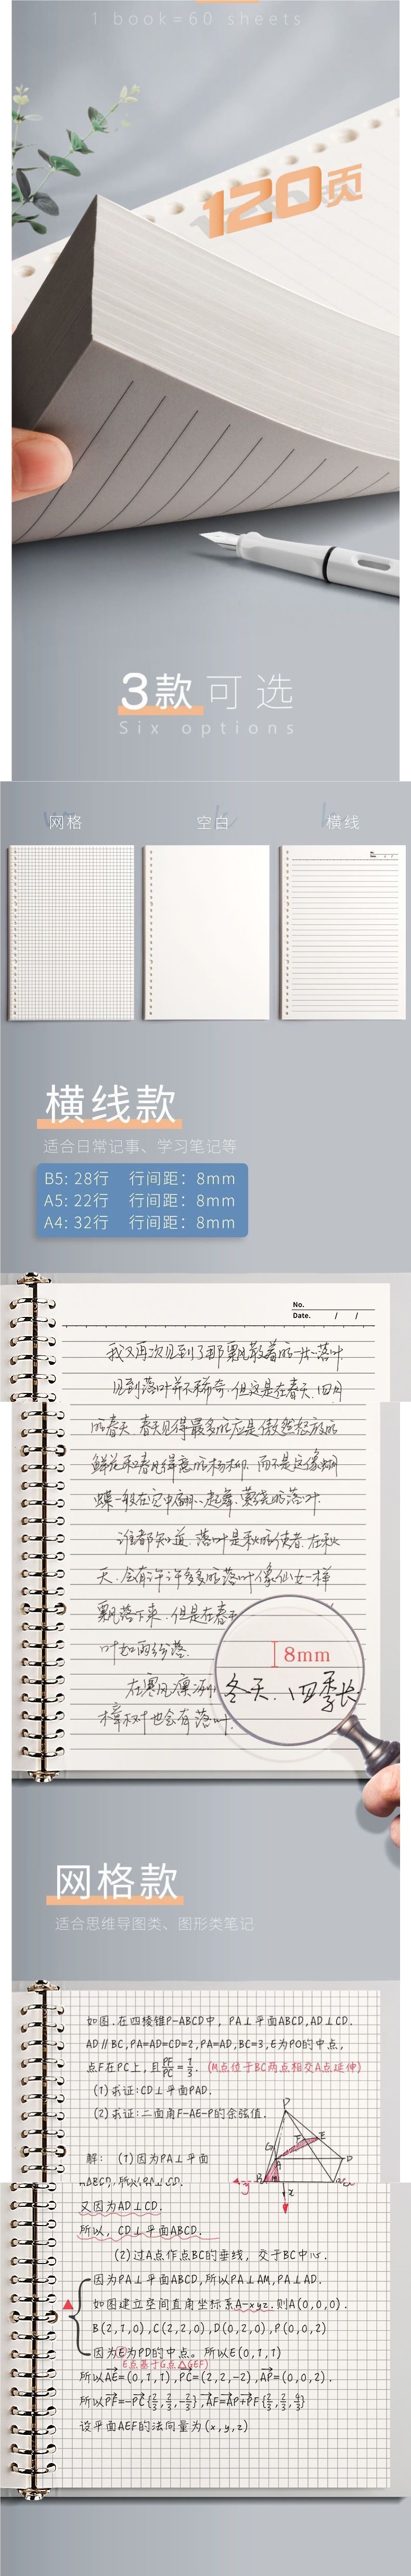 1 book=60 sheets
120页
3款可选
Six options
网格
空白
横线
横线款
适合日常记事、学习笔记等
B5: 28行 行间距: 8mm
A5: 22行 行间距: 8mm
A4: 32行 行间距: 8mm
No.
Date. / /
我又再次见到了那飘散着的一片落叶
见到落叶并不稀奇.但这是在春天.四月
的春天.春天见得最多的应是傲然怒放的
鲜花和春风得意的杨柳.而不是这像蝴
蝶一般在空中翩翩起舞.萦绕的落叶.
谁都知道.落叶是秋的使者.在秋
天.会有许许多多的落叶像仙女一样
飘落下来.但是在春天
叶如雨纷落.
8mm
在寒风凛冽
冬天.四季长
樟树也会有落叶.
网格款
适合思维导图类、图形类笔记
如图.在四棱锥P-ABCD中, PA⊥平面ABCD,AD⊥CD.
AD∥BC,PA=AD=CD=2,PA=AD,BC=3,E为PO的中点,
点F在PC上,且PF/PC=1/3. (M点位于BC两点相交A点延伸)
(1)求证:CD⊥平面PAD.
(2)求证:二面角F-AE-P的余弦值.
解: (1)因为PA⊥平面
ABCD,所以PA⊥CD.
又因为AD⊥CD.
所以, CD⊥平面ABCD.
(2)过A点作点BC的垂线, 交于BC中心.
因为PA⊥平面ABCD,所以PA⊥AM,PA⊥AD.
如图建立空间直角坐标系A-xyz.则A(0,0,0).
B(2,1,0),C(2,2,0),D(0,2,0),P(0,0,2)
因为E为PD的中点。所以E(0,1,1)
E点基于G点△GEF)
所以AE=(0,1,1),PC=(2,2,-2),AP=(0,0,2).
设平面AEF的法向量为(x,y,z)